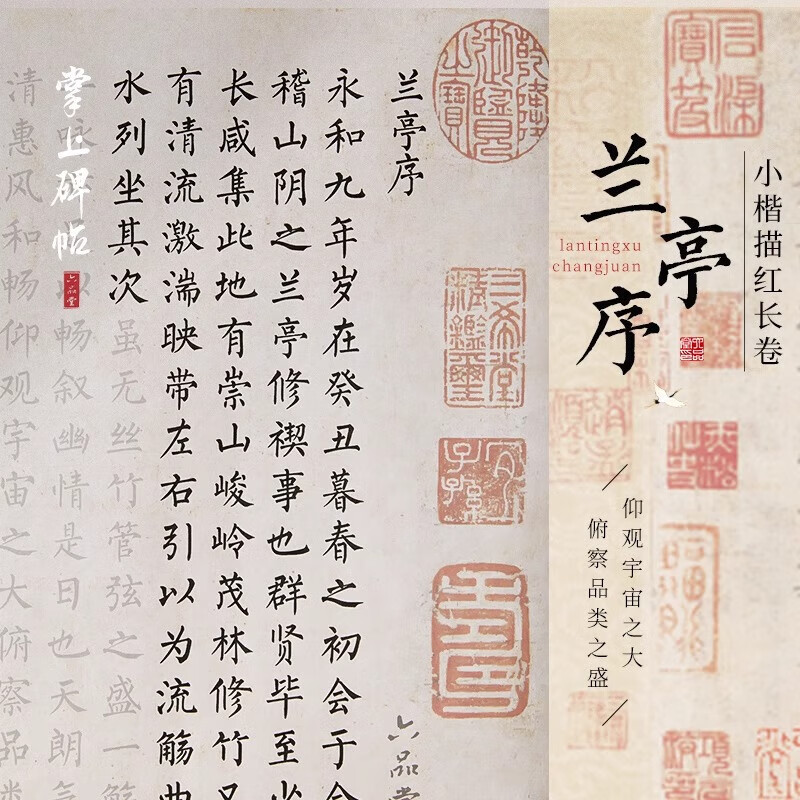 小楷描红长卷
兰亭序
lantingxu
changjuan
仰观宇宙之大
俯察品类之盛
兰亭序
六品堂
永和九年岁在癸丑暮春之初会于会
稽山阴之兰亭修禊事也群贤毕至少
长咸集此地有崇山峻岭茂林修竹
有清流激湍映带左右引以为流觞曲
水列坐其次虽无丝竹管弦之盛一觞
咏以畅叙幽情是日也天朗气
清惠风和畅仰观宇宙之大俯察品类
掌上碑帖
六品堂